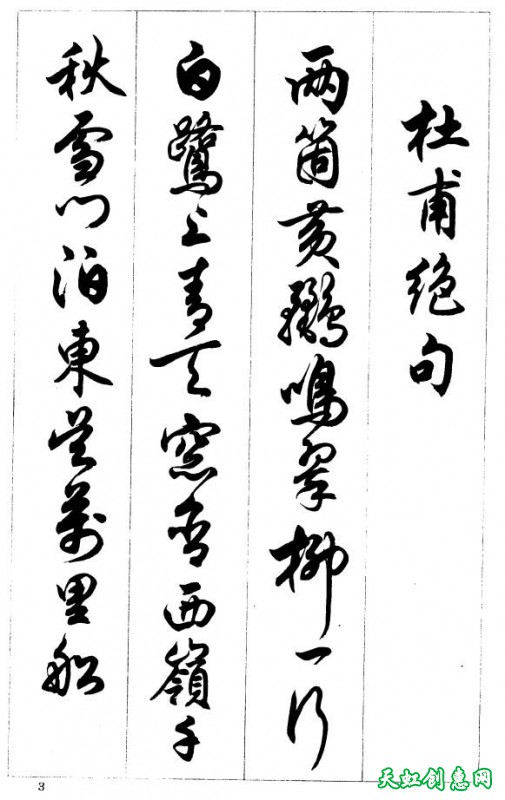 杜甫絕句
兩箇黃鸝鳴翠柳一行
白鷺上青天窓含西嶺千
秋雪門泊東吳萬里船
3
天虹创意网